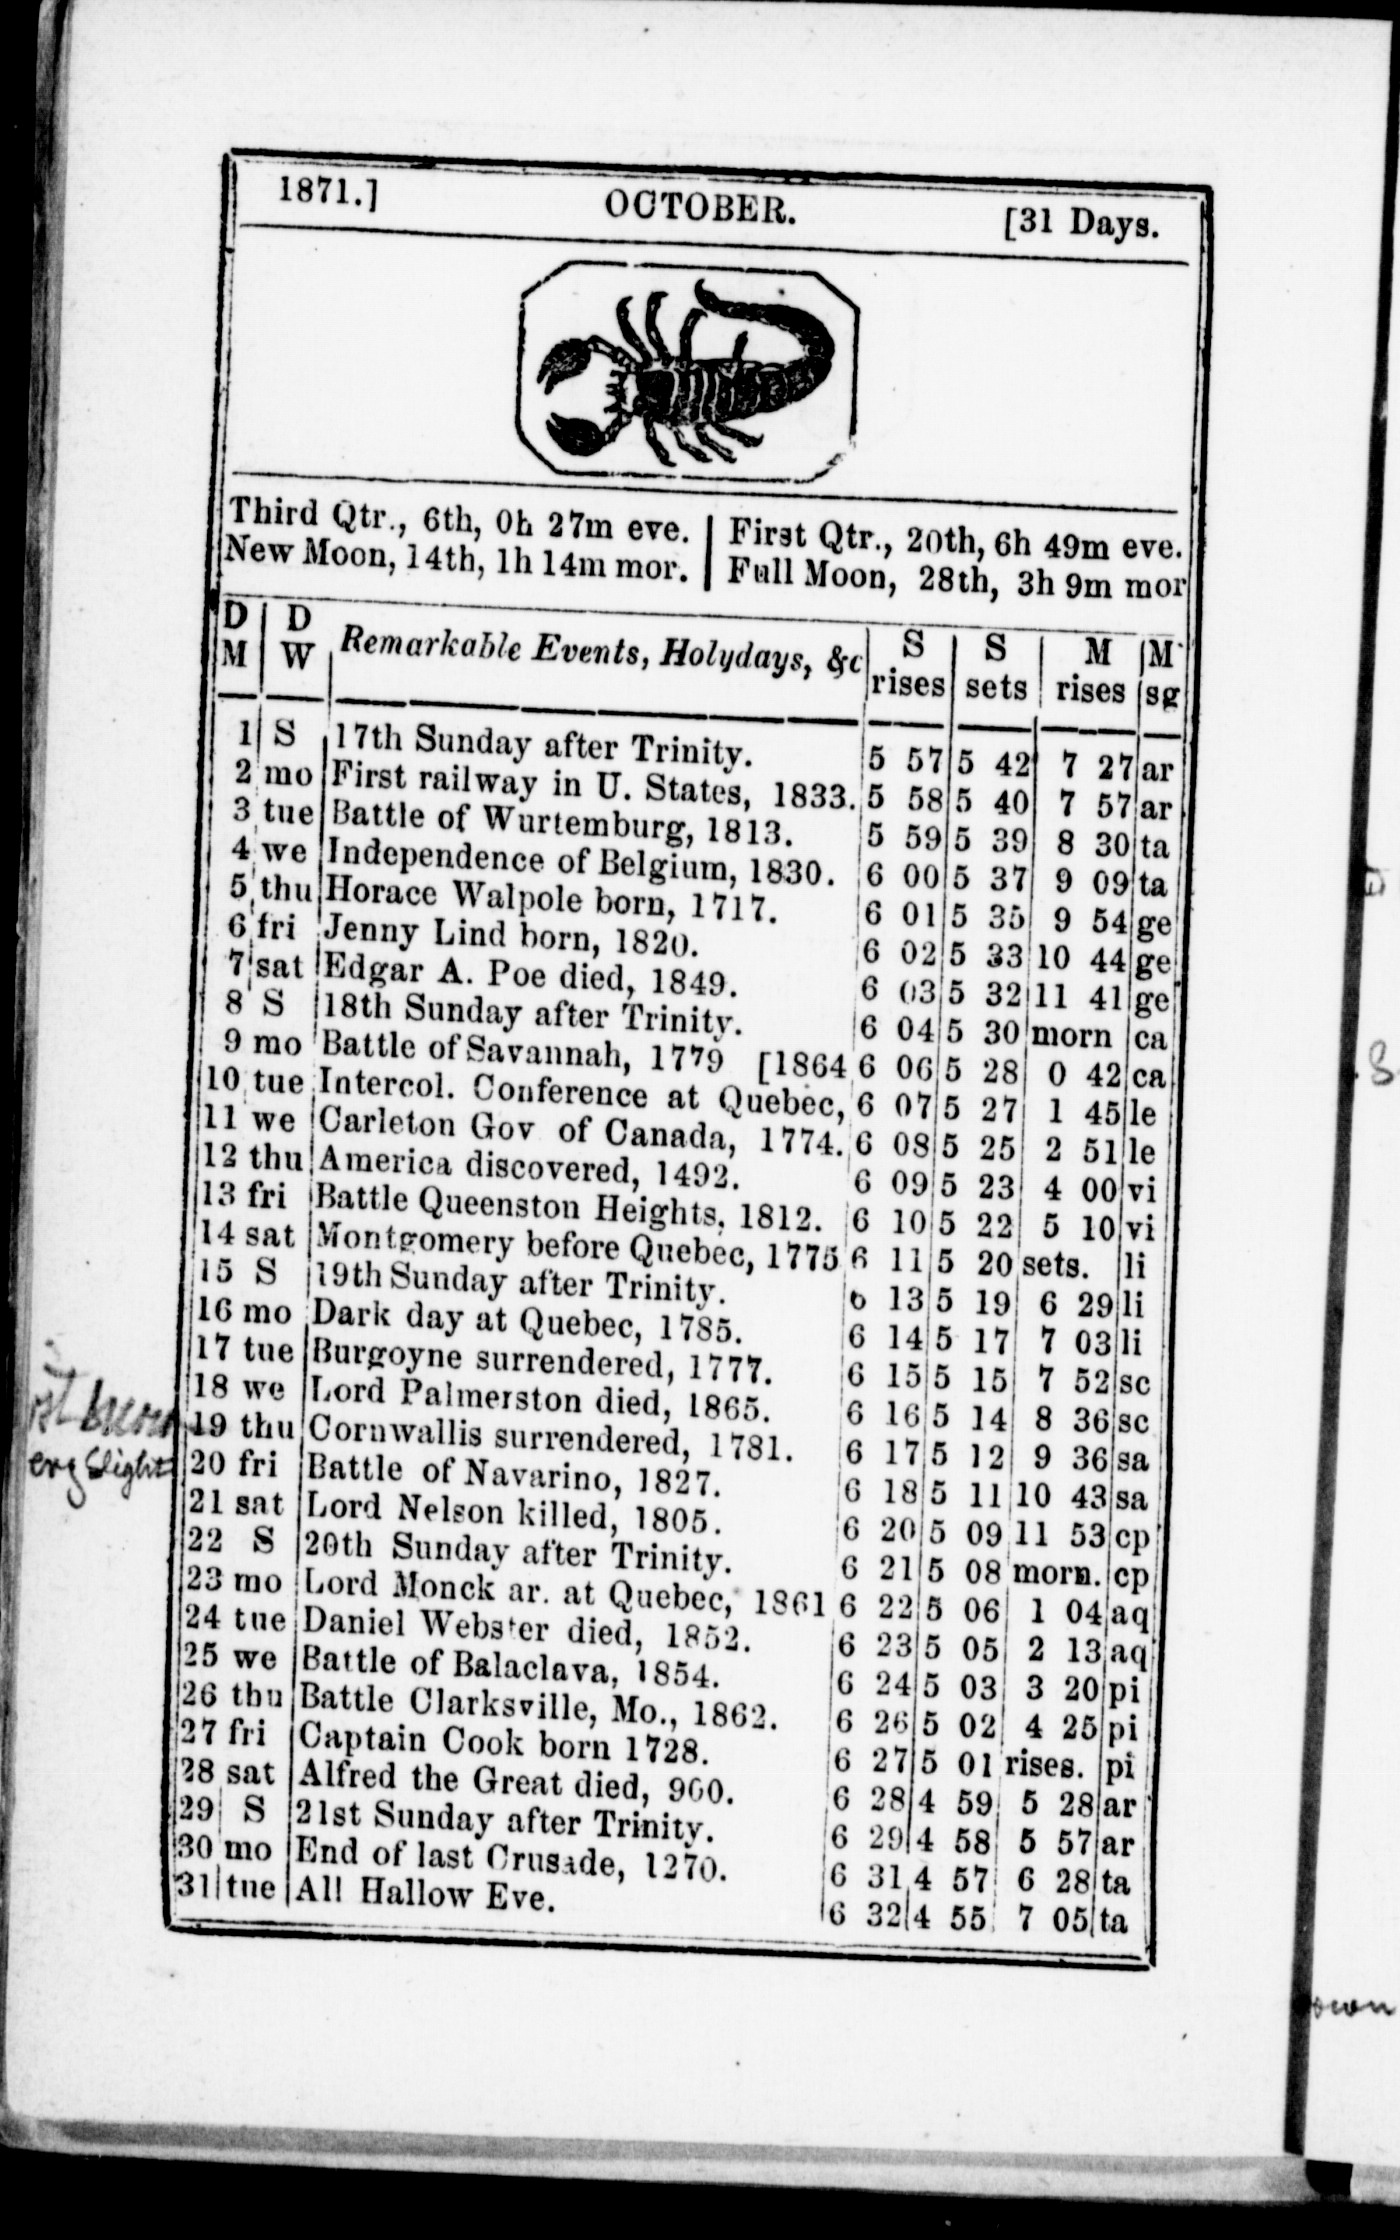 1871.] OCTOBER. [31 Days.
Third Qtr., 6th, 0h 27m eve. | First Qtr., 20th, 6h 49m eve.
New Moon, 14th, 1h 14m mor. | Full Moon, 28th, 3h 9m mor
D M | D W | Remarkable Events, Holydays, &c | S rises | S sets | M rises | M sg
1 S 17th Sunday after Trinity. 5 57 5 42 7 27 ar
2 mo First railway in U. States, 1833. 5 58 5 40 7 57 ar
3 tue Battle of Wurtemburg, 1813. 5 59 5 39 8 30 ta
4 we Independence of Belgium, 1830. 6 00 5 37 9 09 ta
5 thu Horace Walpole born, 1717. 6 01 5 35 9 54 ge
6 fri Jenny Lind born, 1820. 6 02 5 33 10 44 ge
7 sat Edgar A. Poe died, 1849. 6 03 5 32 11 41 ge
8 S 18th Sunday after Trinity. 6 04 5 30 morn ca
9 mo Battle of Savannah, 1779 [1864 6 06 5 28 0 42 ca
10 tue Intercol. Conference at Quebec, 6 07 5 27 1 45 le
11 we Carleton Gov of Canada, 1774. 6 08 5 25 2 51 le
12 thu America discovered, 1492. 6 09 5 23 4 00 vi
13 fri Battle Queenston Heights, 1812. 6 10 5 22 5 10 vi
14 sat Montgomery before Quebec, 1775 6 11 5 20 sets. li
15 S 19th Sunday after Trinity. 6 13 5 19 6 29 li
16 mo Dark day at Quebec, 1785. 6 14 5 17 7 03 li
17 tue Burgoyne surrendered, 1777. 6 15 5 15 7 52 sc
18 we Lord Palmerston died, 1865. 6 16 5 14 8 36 sc
19 thu Cornwallis surrendered, 1781. 6 17 5 12 9 36 sa
20 fri Battle of Navarino, 1827. 6 18 5 11 10 43 sa
21 sat Lord Nelson killed, 1805. 6 20 5 09 11 53 cp
22 S 20th Sunday after Trinity. 6 21 5 08 morn. cp
23 mo Lord Monck ar. at Quebec, 1861 6 22 5 06 1 04 aq
24 tue Daniel Webster died, 1852. 6 23 5 05 2 13 aq
25 we Battle of Balaclava, 1854. 6 24 5 03 3 20 pi
26 thu Battle Clarksville, Mo., 1862. 6 26 5 02 4 25 pi
27 fri Captain Cook born 1728. 6 27 5 01 rises. pi
28 sat Alfred the Great died, 900. 6 28 4 59 5 28 ar
29 S 21st Sunday after Trinity. 6 29 4 58 5 57 ar
30 mo End of last Crusade, 1270. 6 31 4 57 6 28 ta
31 tue All Hallow Eve. 6 32 4 55 7 05 ta
slight